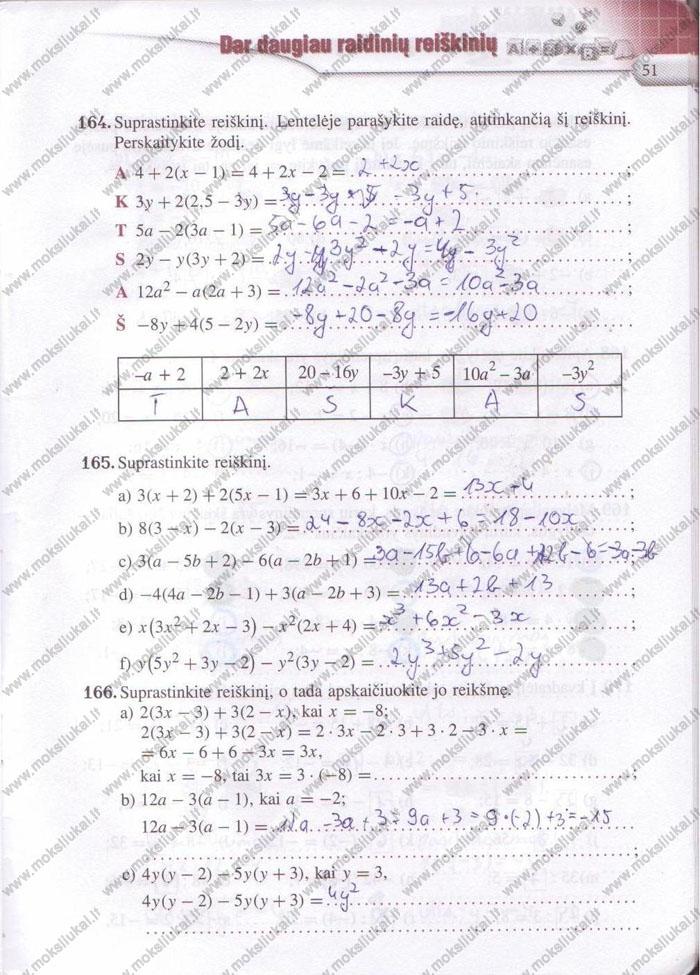 Dar daugiau raidinių reiškinių
51
164. Suprastinkite reiškinį. Lentelėje parašykite raidę, atitinkančią šį reiškinį.
Perskaitykite žodį.
A 4 + 2(x − 1) = 4 + 2x − 2 = 2 + 2x ;
K 3y + 2(2,5 − 3y) = 3y − 3y − 3y + 5 ;
T 5a − 2(3a − 1) = 5a − 6a − 2 = −a + 2 ;
S 2y − y(3y + 2) = 2y − 3y² + 2y = 4y − 3y² ;
A 12a² − a(2a + 3) = 12a² − 2a² − 3a = 10a² − 3a ;
Š −8y + 4(5 − 2y) = −8y + 20 − 8y = −16y + 20
−a + 2 2 + 2x 20 − 16y −3y + 5 10a² − 3a −3y²
T A Š K A S
165. Suprastinkite reiškinį.
a) 3(x + 2) + 2(5x − 1) = 3x + 6 + 10x − 2 = 13x − 4 ;
b) 8(3 − x) − 2(x − 3) = 24 − 8x − 2x + 6 = 18 − 10x ;
c) 3(a − 5b + 2) − 6(a − 2b + 1) = 3a − 15b + 6 − 6a + 12b − 6 = −3a − 3b
d) −4(4a − 2b − 1) + 3(a − 2b + 3) = −13a + 2b + 13 ;
e) x(3x² + 2x − 3) − x²(2x + 4) = x³ + 6x² − 3x ;
f) y(5y² + 3y − 2) − y²(3y − 2) = 2y³ + 5y² − 2y .
166. Suprastinkite reiškinį, o tada apskaičiuokite jo reikšmę.
a) 2(3x − 3) + 3(2 − x), kai x = −8;
2(3x − 3) + 3(2 − x) = 2 · 3x − 2 · 3 + 3 · 2 − 3 · x =
= 6x − 6 + 6 − 3x = 3x,
kai x = −8, tai 3x = 3 · (−8) = ;
b) 12a − 3(a − 1), kai a = −2;
12a − 3(a − 1) = 12a − 3a + 3 = 9a + 3 = 9·(−2)+3 = −15
;
c) 4y(y − 2) − 5y(y + 3), kai y = 3,
4y(y − 2) − 5y(y + 3) = 4y²
www.moksliukai.lt